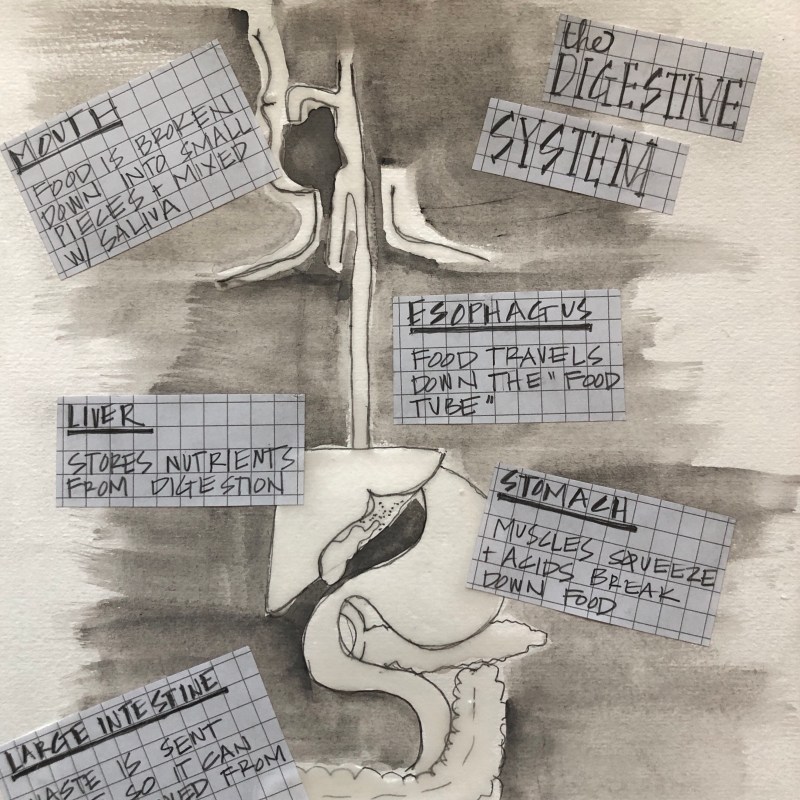 the
DIGESTIVE
SYSTEM
MOUTH
FOOD IS BROKEN
DOWN INTO SMALL
PIECES + MIXED
W/ SALIVA
ESOPHAGUS
FOOD TRAVELS
DOWN THE "FOOD
TUBE"
LIVER
STORES NUTRIENTS
FROM DIGESTION
STOMACH
MUSCLES SQUEEZE
+ ACIDS BREAK
DOWN FOOD
LARGE INTESTINE
WASTE IS SENT
SO IT CAN
FROM